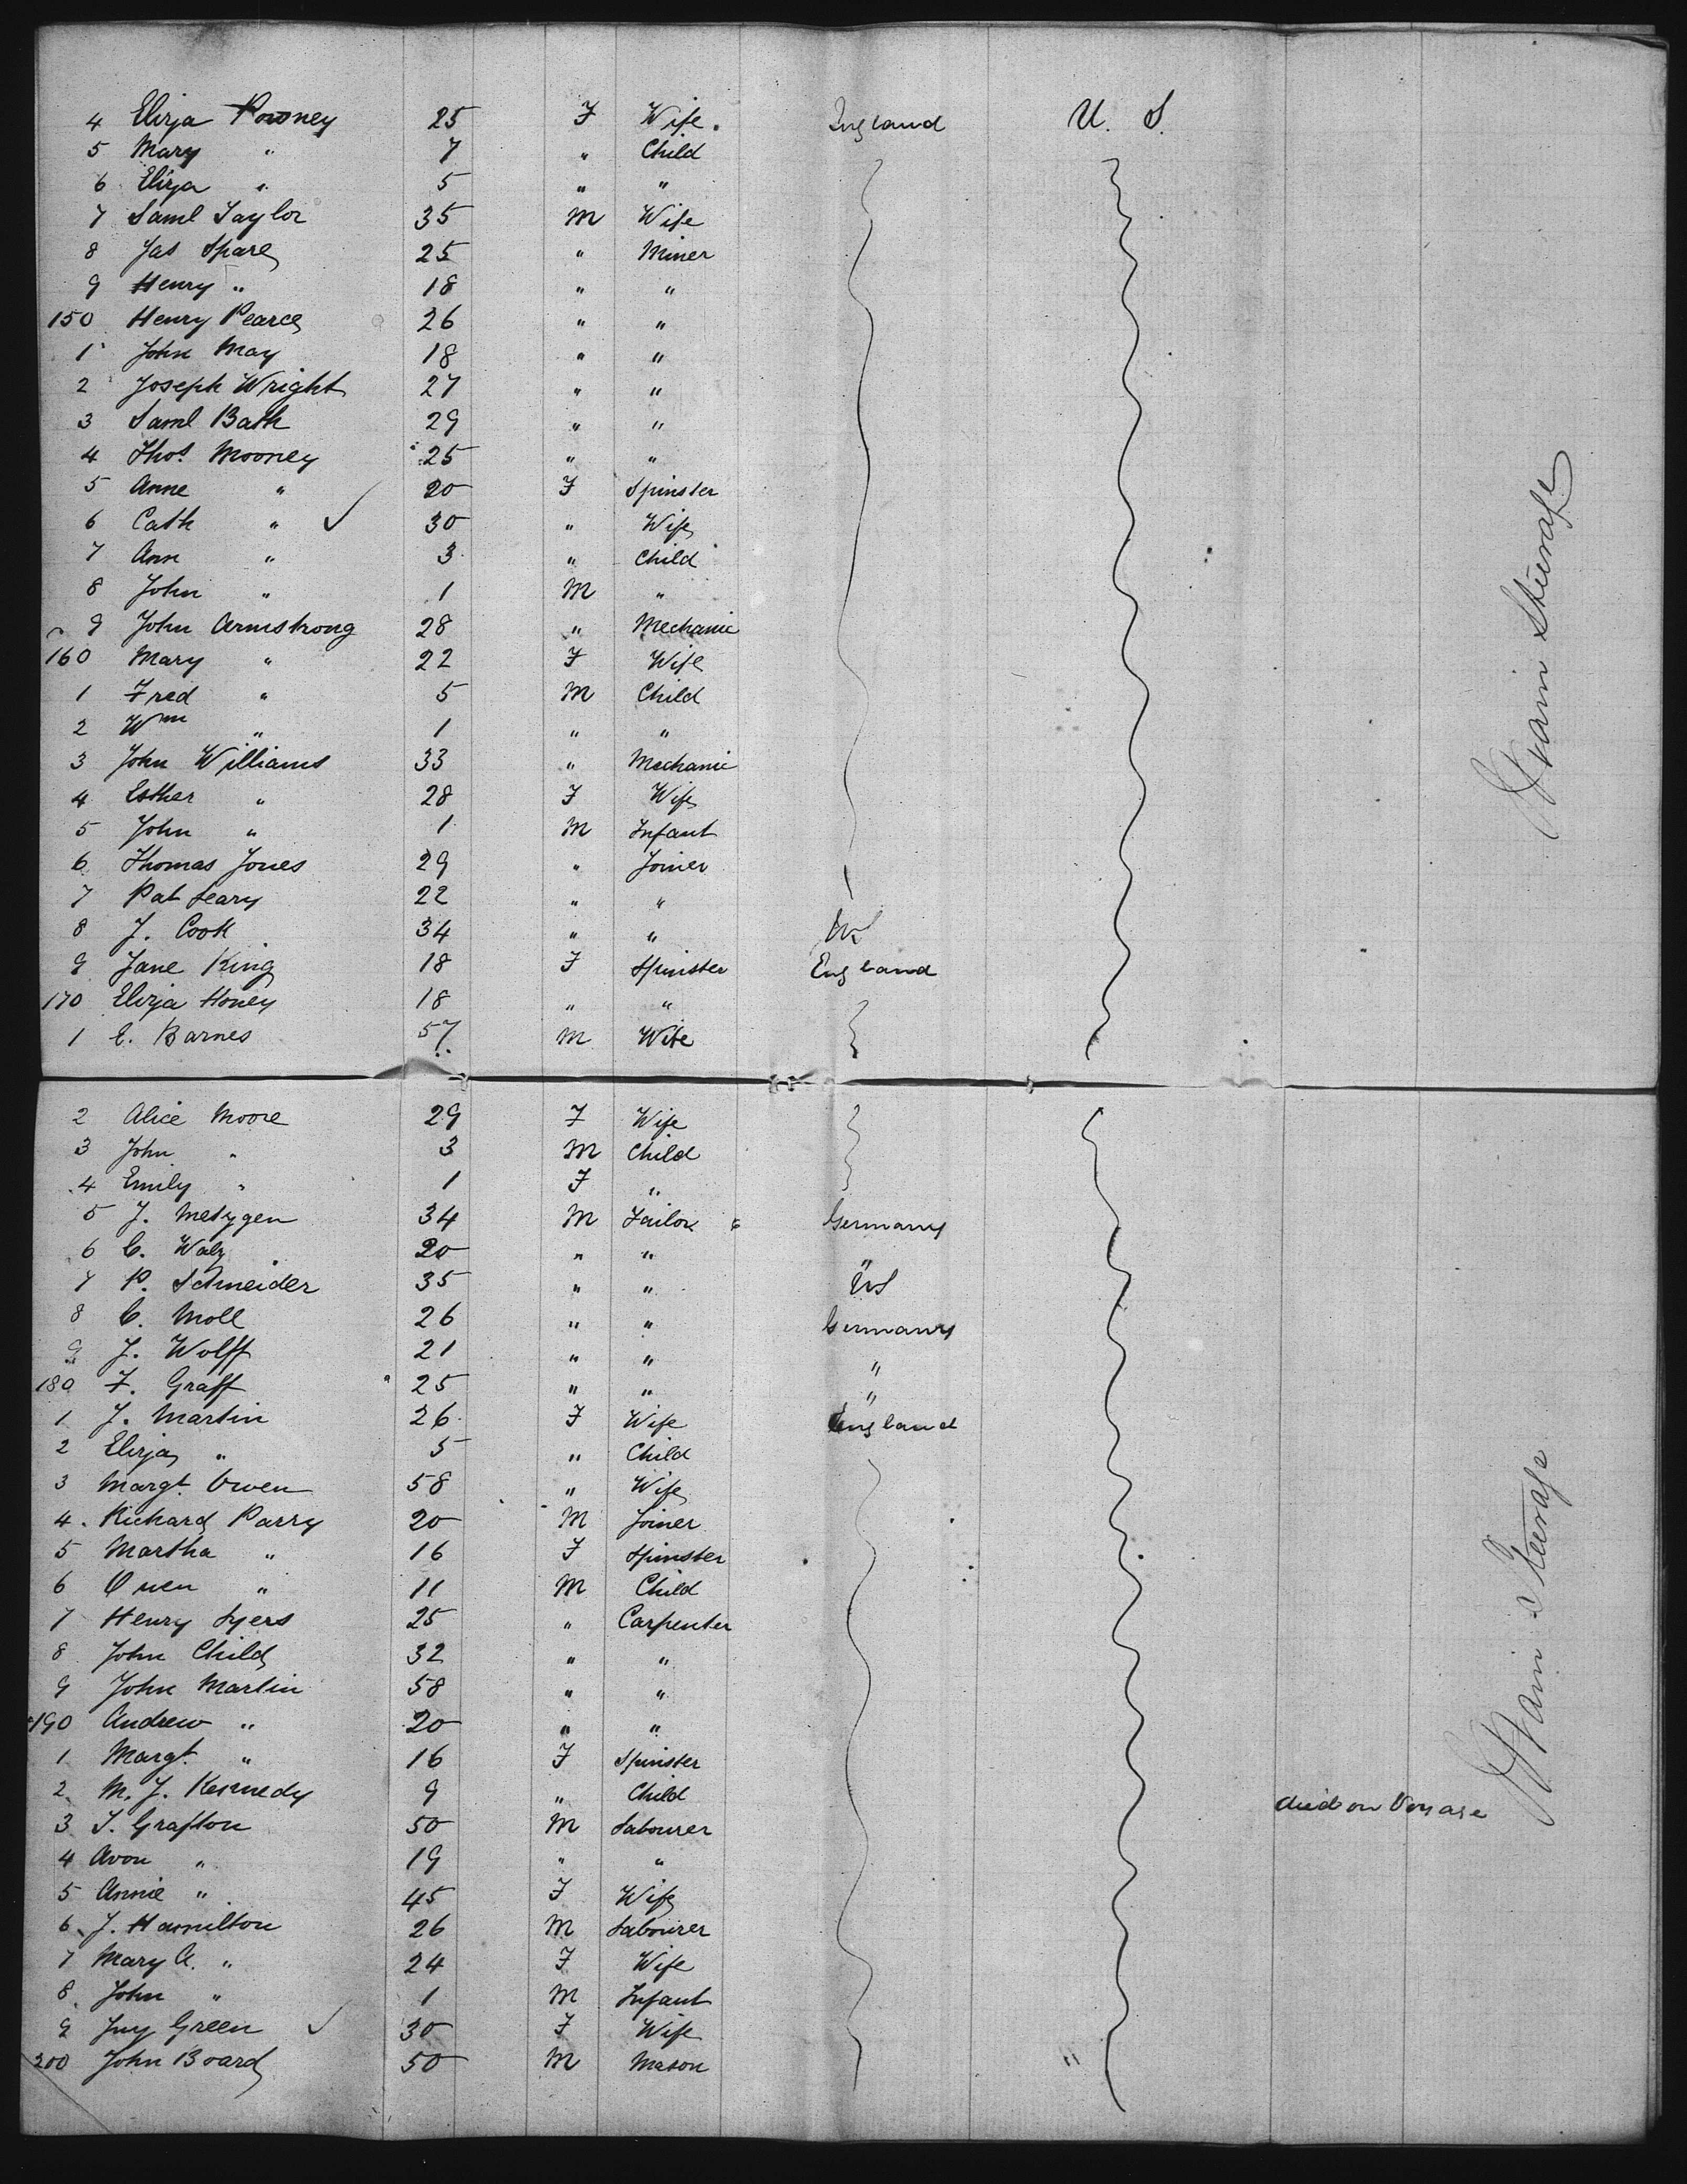 4 Eliza Powney 25 F Wife. England U. S.
5 Mary " 7 " Child
6 Eliza " 5 " "
7 Saml Taylor 35 M Wife
8 Jas Spare 25 " Miner
9 Henry " 18 " "
150 Henry Pearce 26 " "
1 John May 18 " "
2 Joseph Wright 27 " "
3 Saml Bath 29 " "
4 Thos. Mooney 25 " "
5 Anne " 20 F Spinster
6 Cath " ✓ 30 " Wife
7 Ann " 3 " Child
8 John " 1 M "
9 John Armstrong 28 " Mechanic
160 Mary " 22 F Wife
1 Fred " 5 M Child
2 Wm " 1 " "
3 John Williams 33 " Mechanic
4 Esther " 28 F Wife
5 John " 1 M Infant
6 Thomas Jones 29 " Joiner
7 Pat Leary 22 " "
8 J. Cook 34 " " US
9 Jane King 18 F Spinster England
170 Eliza Honey 18 " "
1 E. Barnes 57 M Wife
Main Steerage
2 Alice Moore 29 F Wife
3 John " 3 M Child
4 Emily " 1 F "
5 J. Metzgen 34 M Tailor Germany
6 C. Walz 20 " " "
7 P. Schneider 35 " " US
8 C. Moll 26 " " Germany
9 J. Wolff 21 " " "
180 F. Graff 25 " " "
1 J. Martin 26 F Wife England
2 Eliza " 5 " Child
3 Margt. Owen 58 " Wife
4 Richard Parry 20 M Joiner
5 Martha " 16 F Spinster
6 Owen " 11 M Child
7 Henry Syers 25 " Carpenter
8 John Child 32 " "
9 John Martin 58 " "
190 Andrew " 20 " "
1 Margt. " 16 F Spinster
2 M. J. Kennedy 9 " Child died on Voyage
3 T. Grafton 50 M Labourer
4 Avon " 19 " "
5 Annie " 45 F Wife
6 J. Hamilton 26 M Labourer
7 Mary A. " 24 F Wife
8 John " 1 M Infant
9 Green ✓ 30 F Wife
200 John Board 50 M Mason "
Main Steerage